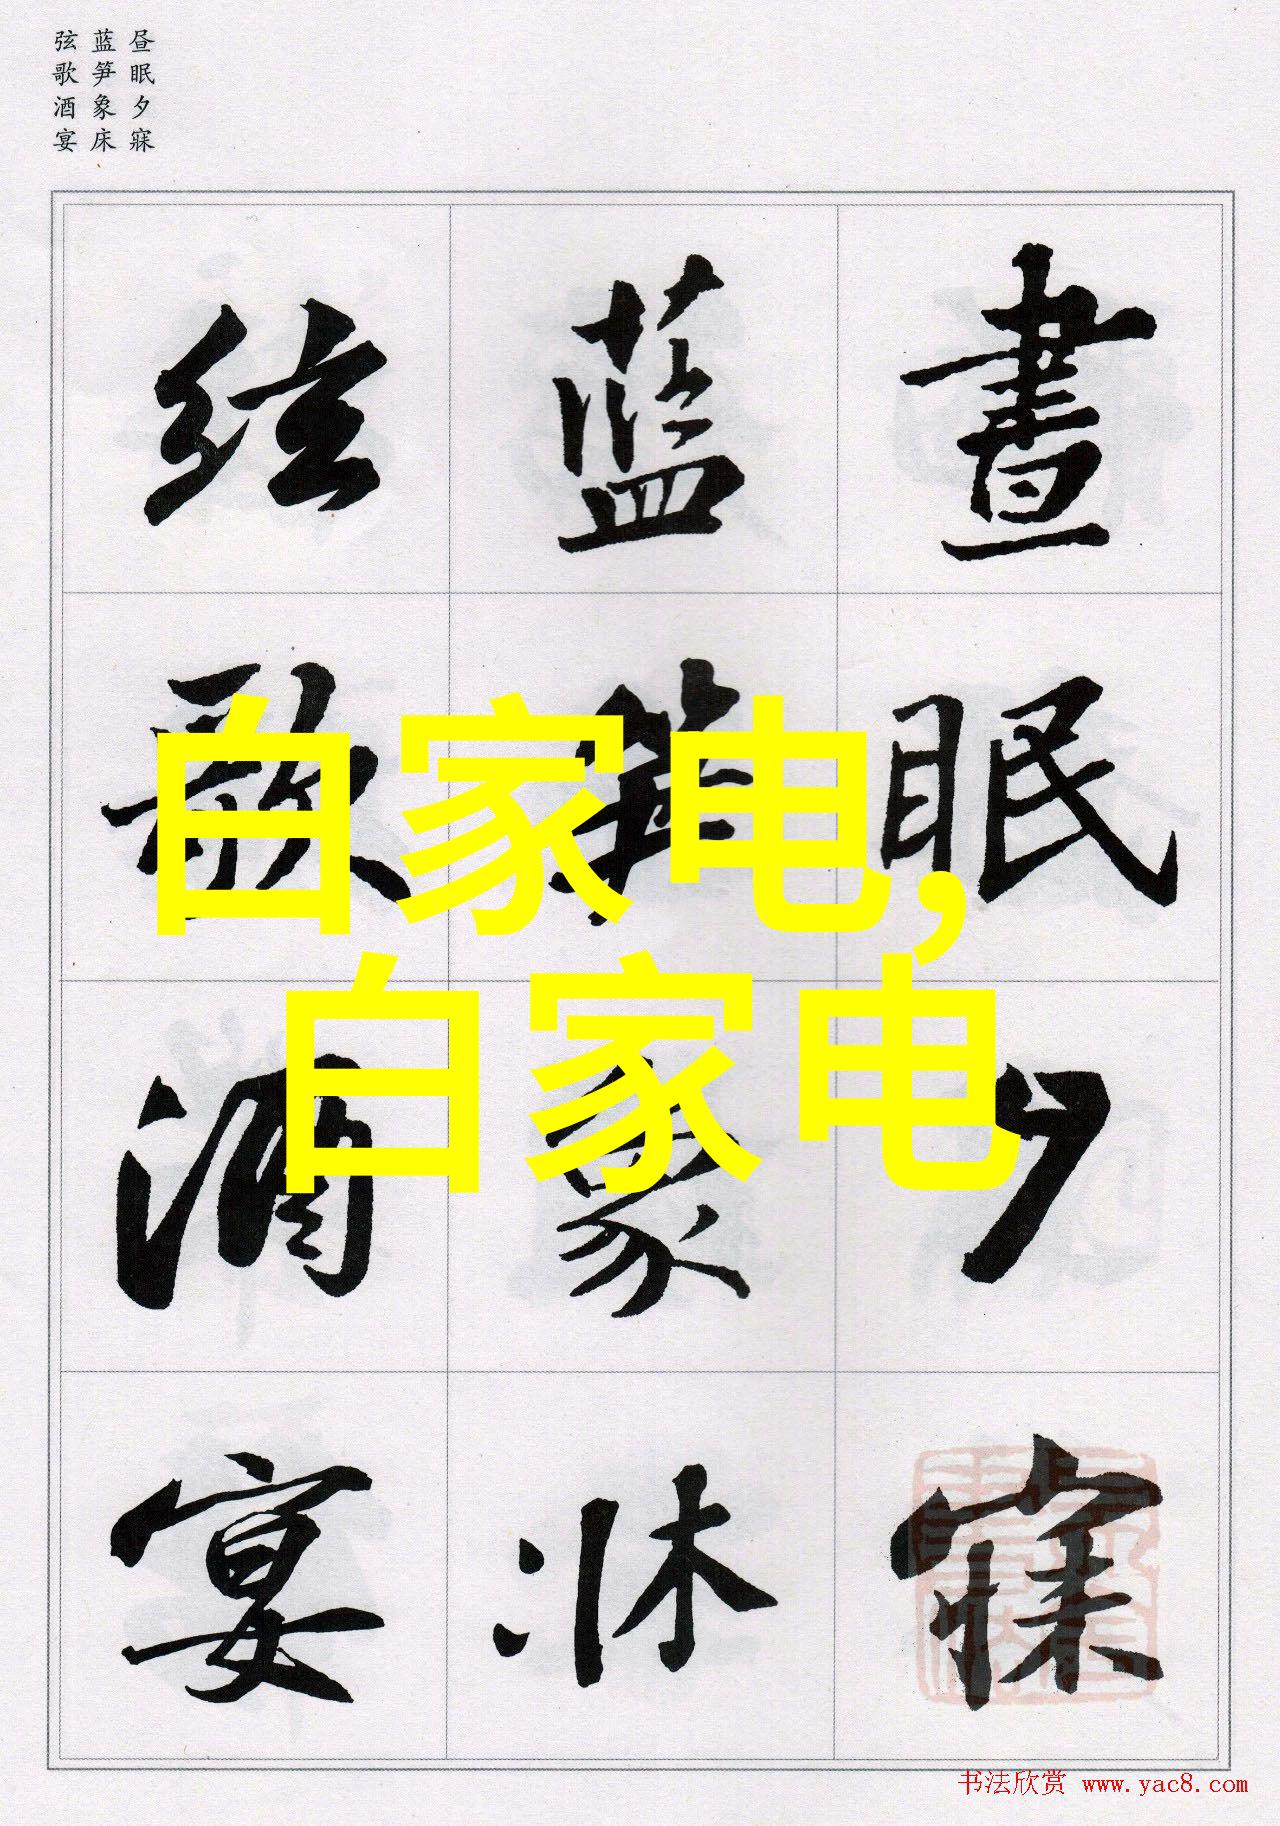 昼眠夕寐
蓝笋象床
弦歌酒宴
晝眠夕寐
藍笋象牀
絃歌酒宴
白家电,
白家电
书法欣赏 www.yac8.com